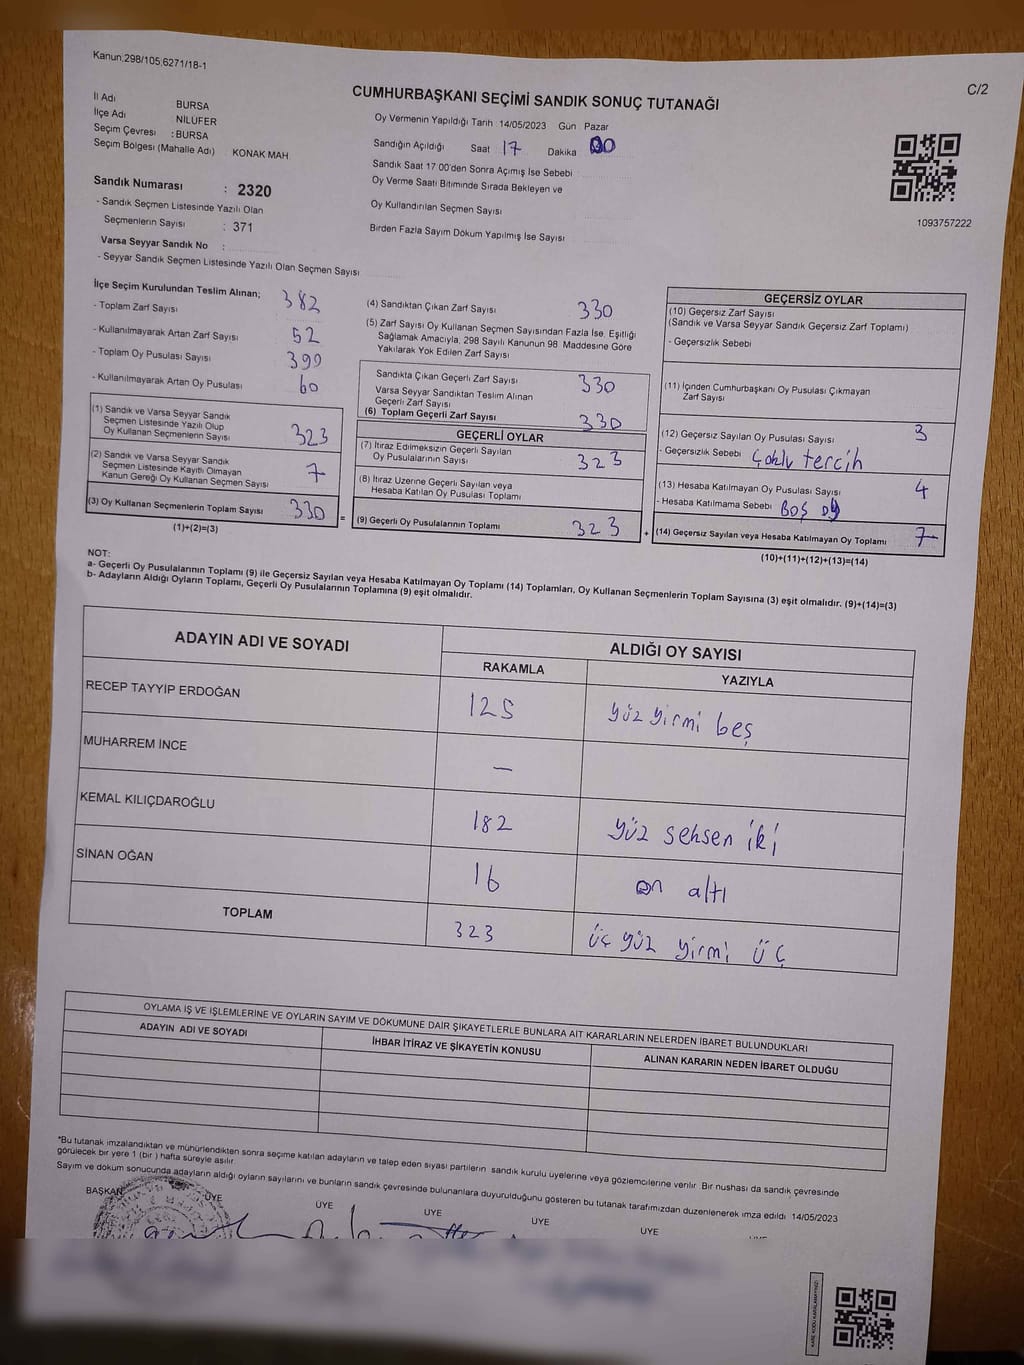 Kanun:298/105,6271/18-1
C/2
CUMHURBAŞKANI SEÇİMİ SANDIK SONUÇ TUTANAĞI
İl Adı BURSA
İlçe Adı NİLÜFER
Seçim Çevresi : BURSA
Seçim Bölgesi (Mahalle Adı) KONAK MAH
Oy Vermenin Yapıldığı Tarih 14/05/2023 Gün Pazar
Sandığın Açıldığı Saat 17 Dakika 00
Sandık Saat 17 00'den Sonra Açımış İse Sebebi
Oy Verme Saati Bitiminde Sırada Bekleyen ve
Oy Kullandırılan Seçmen Sayısı
Birden Fazla Sayım Döküm Yapılmış İse Sayısı
1093757222
Sandık Numarası : 2320
- Sandık Seçmen Listesinde Yazılı Olan
Seçmenlerin Sayısı : 371
Varsa Seyyar Sandık No :
- Seyyar Sandık Seçmen Listesinde Yazılı Olan Seçmen Sayısı
İlçe Seçim Kurulundan Teslim Alınan;
- Toplam Zarf Sayısı 382
- Kullanılmayarak Artan Zarf Sayısı 52
- Toplam Oy Pusulası Sayısı 390
- Kullanılmayarak Artan Oy Pusulası 60
(1) Sandık ve Varsa Seyyar Sandık
Seçmen Listesinde Yazılı Olup
Oy Kullanan Seçmenlerin Sayısı 323
(2) Sandık ve Varsa Seyyar Sandık
Seçmen Listesinde Kayıtlı Olmayan
Kanun Gereği Oy Kullanan Seçmen Sayısı 7
(3) Oy Kullanan Seçmenlerin Toplam Sayısı 330
(1)+(2)=(3)
(4) Sandıktan Çıkan Zarf Sayısı 330
(5) Zarf Sayısı Oy Kullanan Seçmen Sayısından Fazla İse, Eşitliği
Sağlamak Amacıyla, 298 Sayılı Kanunun 98 Maddesine Göre
Yakılarak Yok Edilen Zarf Sayısı
Sandıkta Çıkan Geçerli Zarf Sayısı 330
Varsa Seyyar Sandıktan Teslim Alınan
Geçerli Zarf Sayısı
(6) Toplam Geçerli Zarf Sayısı 330
GEÇERLİ OYLAR
(7) İtiraz Edilmeksizin Geçerli Sayılan
Oy Pusulalarının Sayısı 323
(8) İtiraz Üzerine Geçerli Sayılan veya
Hesaba Katılan Oy Pusulası Toplamı
= (9) Geçerli Oy Pusulalarının Toplamı 323 +
GEÇERSİZ OYLAR
(10) Geçersiz Zarf Sayısı
(Sandık ve Varsa Seyyar Sandık Geçersiz Zarf Toplamı)
- Geçersizlik Sebebi
(11) İçinden Cumhurbaşkanı Oy Pusulası Çıkmayan
Zarf Sayısı
(12) Geçersiz Sayılan Oy Pusulası Sayısı 3
- Geçersizlik Sebebi Çoklu tercih
(13) Hesaba Katılmayan Oy Pusulası Sayısı 4
- Hesaba Katılmama Sebebi Boş oy
(14) Geçersiz Sayılan veya Hesaba Katılmayan Oy Toplamı 7
(10)+(11)+(12)+(13)=(14)
NOT:
a- Geçerli Oy Pusulalarının Toplamı (9) ile Geçersiz Sayılan veya Hesaba Katılmayan Oy Toplamı (14) Toplamları, Oy Kullanan Seçmenlerin Toplam Sayısına (3) eşit olmalıdır. (9)+(14)=(3)
b- Adayların Aldığı Oyların Toplamı, Geçerli Oy Pusulalarının Toplamına (9) eşit olmalıdır.
ADAYIN ADI VE SOYADI
ALDIĞI OY SAYISI
RAKAMLA YAZIYLA
RECEP TAYYİP ERDOĞAN 125 yüz yirmi beş
MUHARREM İNCE —
KEMAL KILIÇDAROĞLU 182 yüz seksen iki
SİNAN OĞAN 16 on altı
TOPLAM 323 üç yüz yirmi üç
OYLAMA İŞ VE İŞLEMLERİNE VE OYLARIN SAYIM VE DÖKÜMUNE DAİR ŞİKAYETLERLE BUNLARA AİT KARARLARIN NELERDEN İBARET BULUNDUKLARI
ADAYIN ADI VE SOYADI İHBAR İTİRAZ VE ŞİKAYETİN KONUSU ALINAN KARARIN NEDEN İBARET OLDUĞU
*Bu tutanak imzalandıktan ve mühürlendikten sonra seçime katılan adayların ve talep eden siyasi partilerin sandık kurulu üyelerine veya gözlemcilerine verilir Bir nushası da sandık çevresinde
görülecek bir yere 1 (bir) hafta süreyle asılır
Sayım ve döküm sonucunda adayların aldığı oyların sayılarını ve bunların sandık çevresinde bulunanlara duyurulduğunu gösteren bu tutanak tarafımızdan düzenlenerek imza edildi 14/05/2023
BAŞKAN ÜYE ÜYE ÜYE ÜYE ÜYE